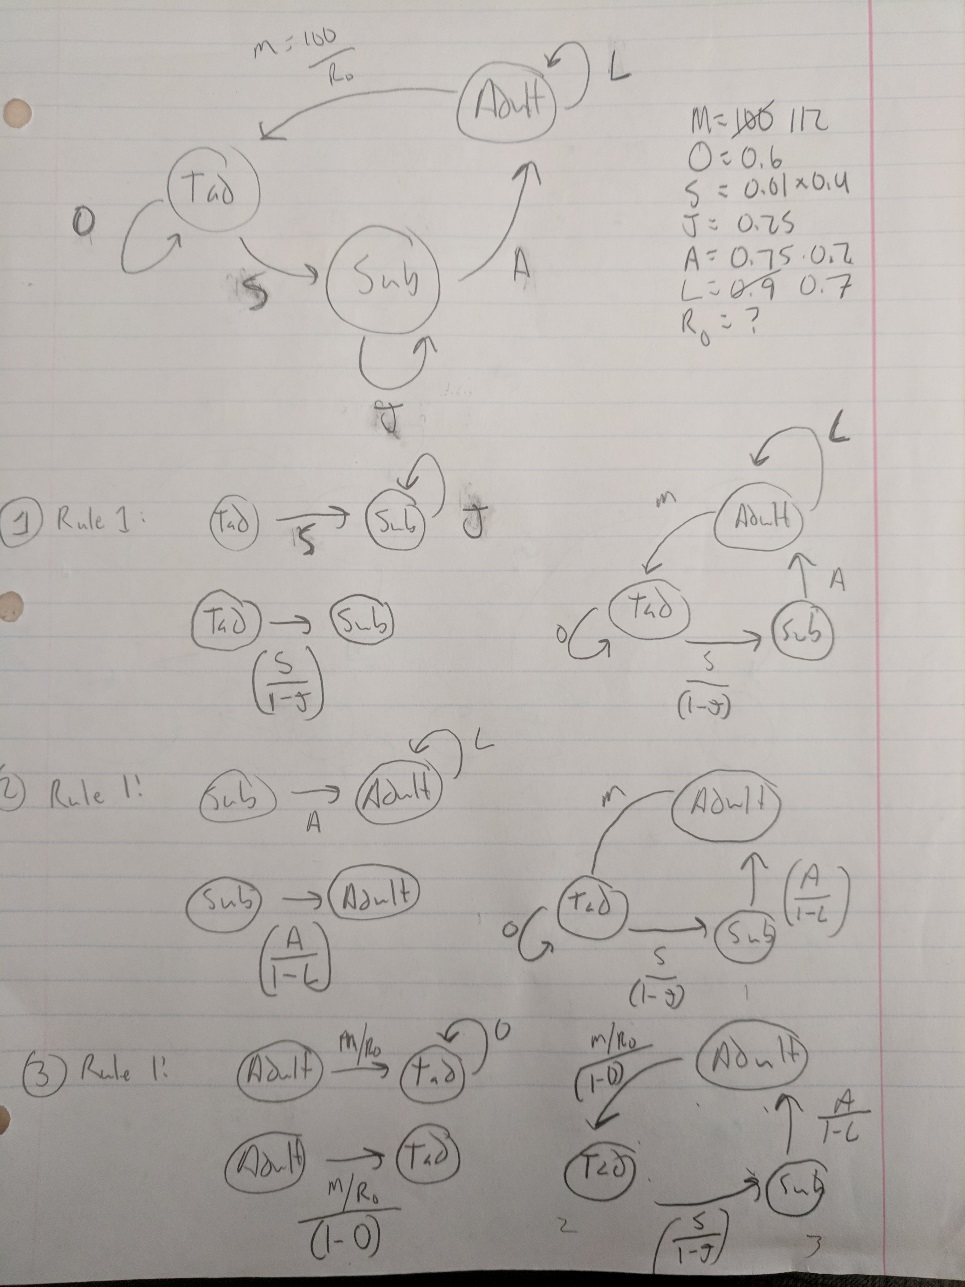 m = 100
R₀
Adult
L
M = 100 112
O = 0.6
S = 0.01 × 0.4
J = 0.25
A = 0.75 · 0.2
L = 0.9 0.7
R₀ = ?
Tad
O
S
Sub
A
J
① Rule 1:
Tad
S
Sub
J
Tad
Sub
(S
1-J)
L
m
Adult
A
Tad
O
Sub
S
(1-J)
② Rule 1:
Sub
A
Adult
L
Sub
Adult
(A
1-L)
m
Adult
Tad
O
Sub
(A
1-L)
S
(1-J)
③ Rule 1:
Adult
M/R₀
Tad
O
Adult
Tad
M/R₀
(1-O)
M/R₀
(1-O)
Adult
A
1-L
Tad
Sub
(S
1-J)
2
3